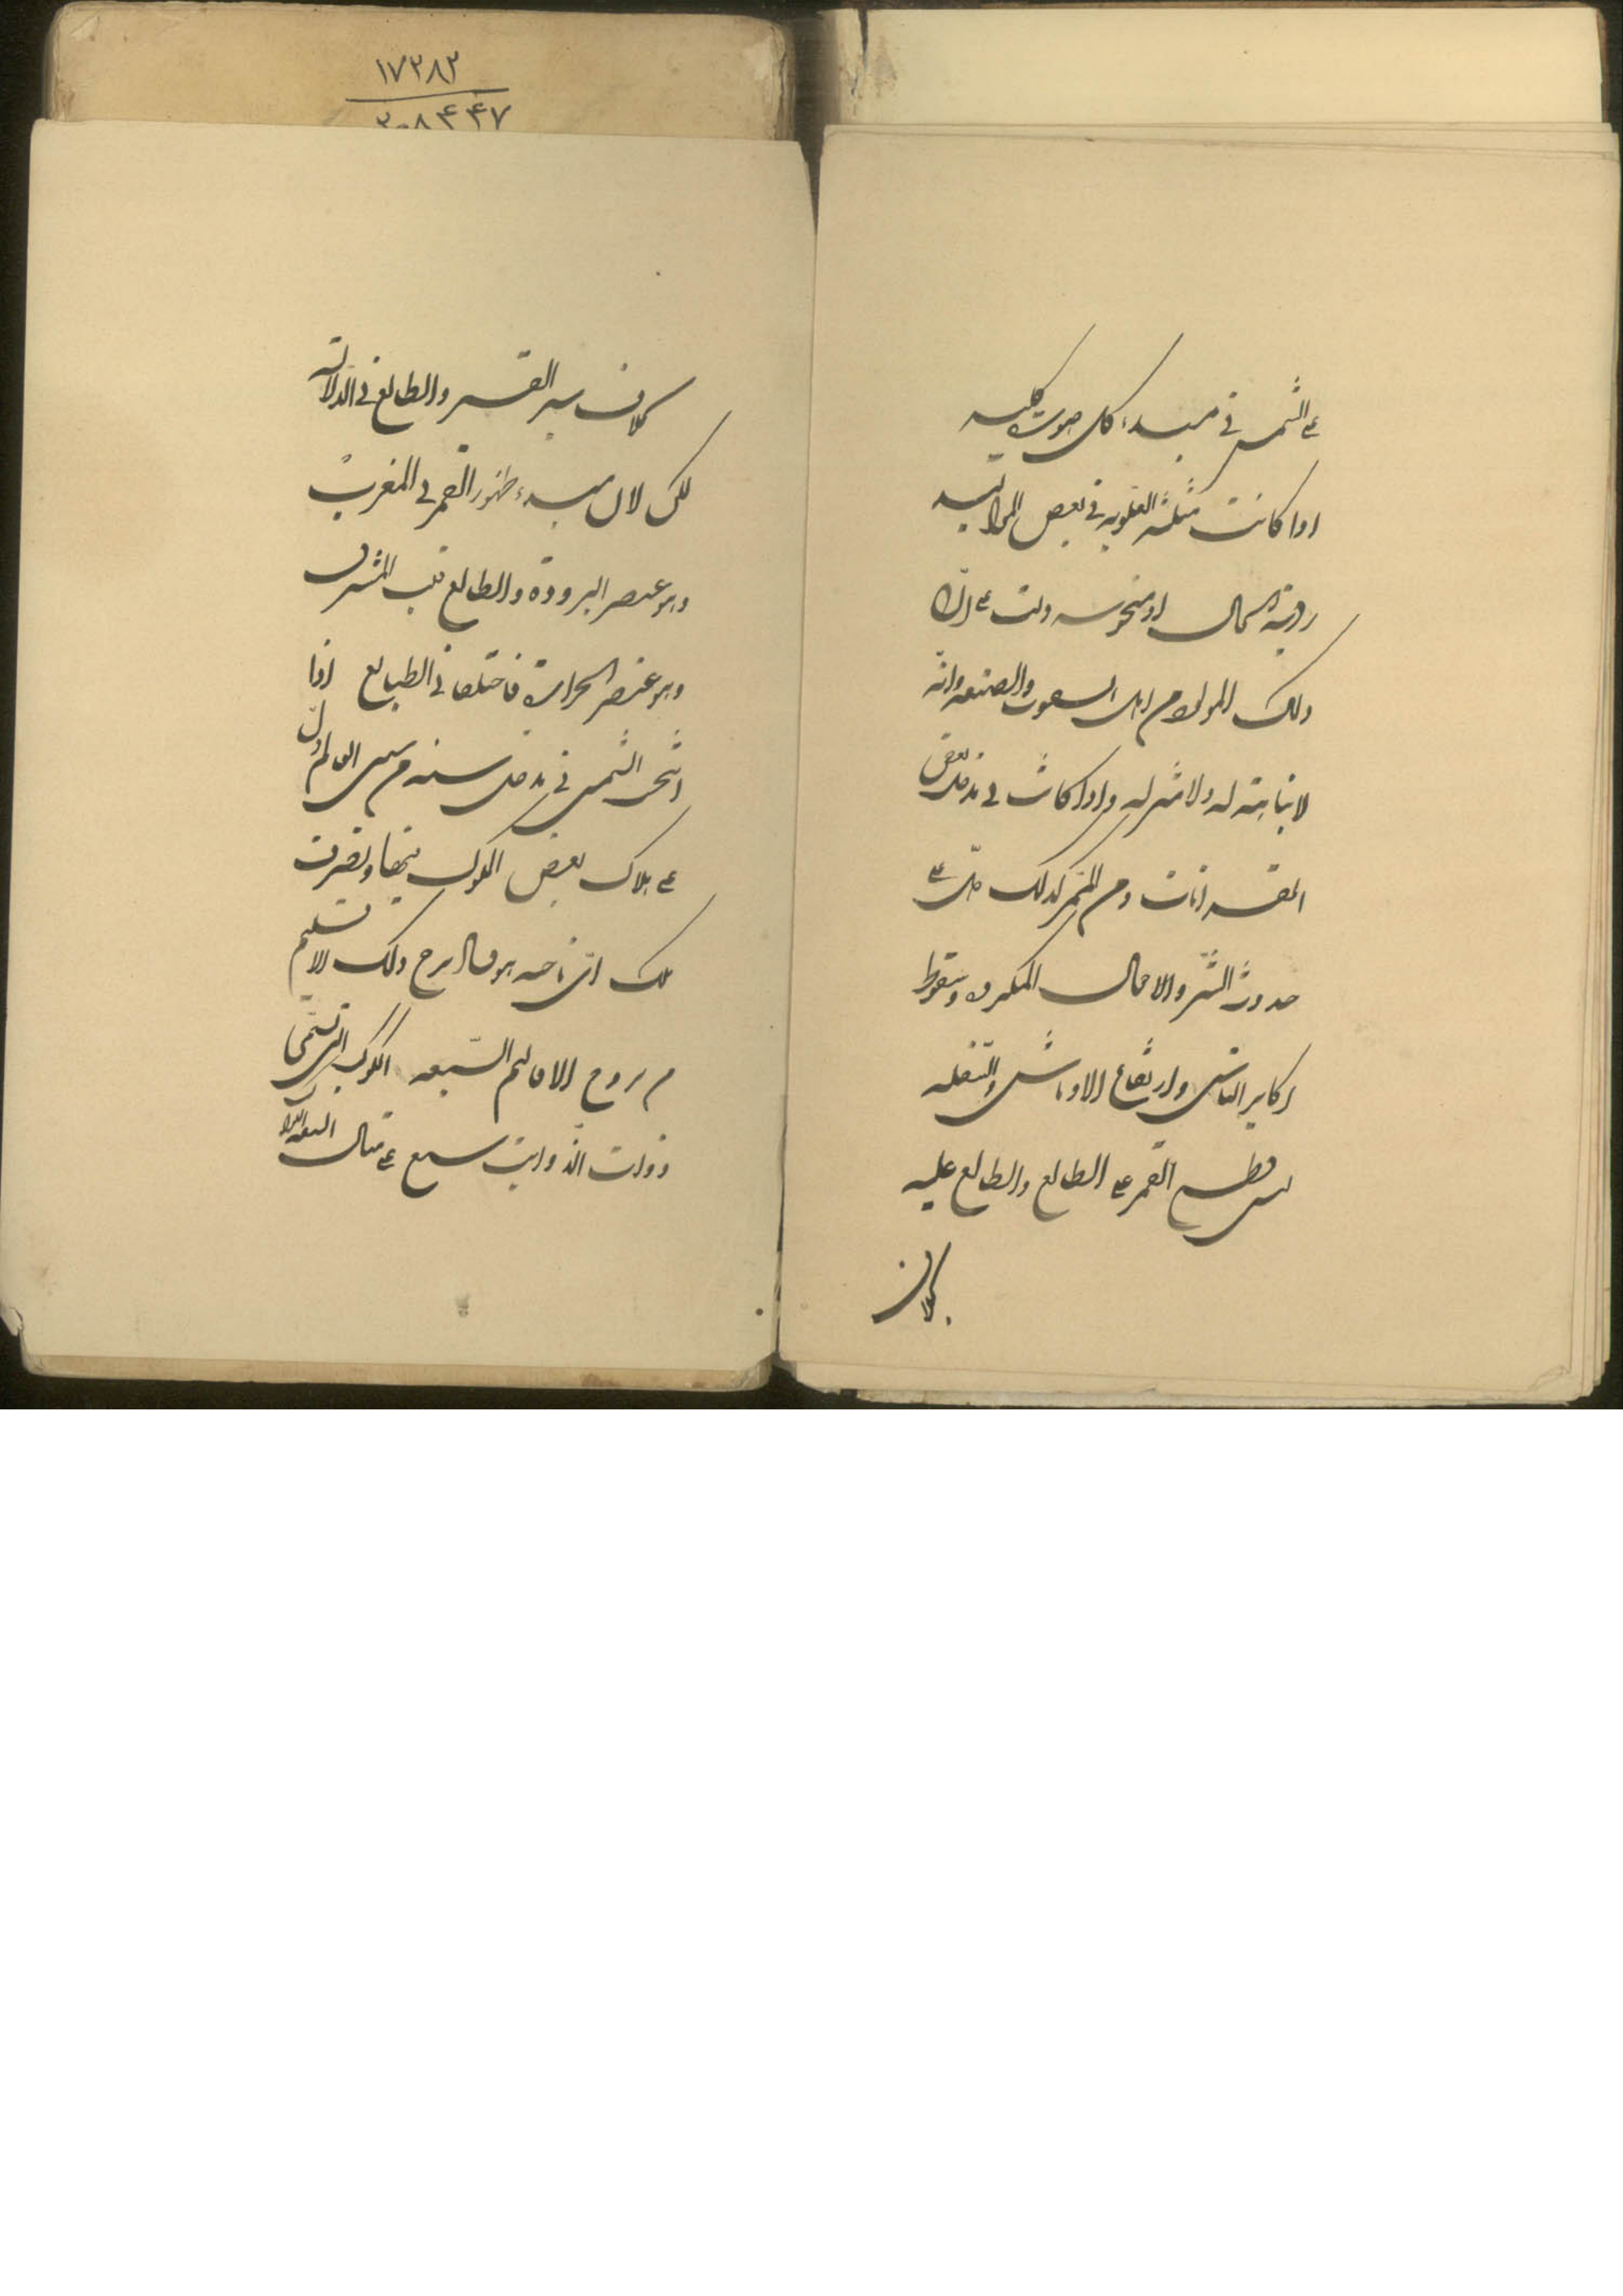 على الشمس في مبدء كل صورة كلية
اذا كانت مثلثه العلويه في بعض المواليد
ردية الحال او منحوسه دلت على ان
ذلك المولود من اهل السعوت والصنعه وانه
لا نباهة له ولا شرف له واذا كانت في مدخل بعض
القرانات ومن الممر كذلك دل على
حدوث الشر والاحوال المكروه وسقوط
اكابر الناس وارتفاع الاوباش والسفله
ليس قطع القمر على الطالع والطالع عليه
بخلاف
بخلاف سير القمر والطالع في الدلاله
لكن لان مبدء ظهور القمر في المغرب
وهو عنصر البروده والطالع قلب المشرق
وهو عنصر الحرارة فاختلفا في الطبايع اذا
انتحس الشمس في مدخل سنة من سنى العالم دل
على هلاك بعض الملوك فيها وتصرف
ملك الى ناحيه هو فى البرج ذلك الاقليم
من بروج الاقاليم السبعه الكواكب التى تسمى
ذوات الذوايب سبع على مثال السبعه
۱۷۳۸۳
۲۰۸۴۴۷